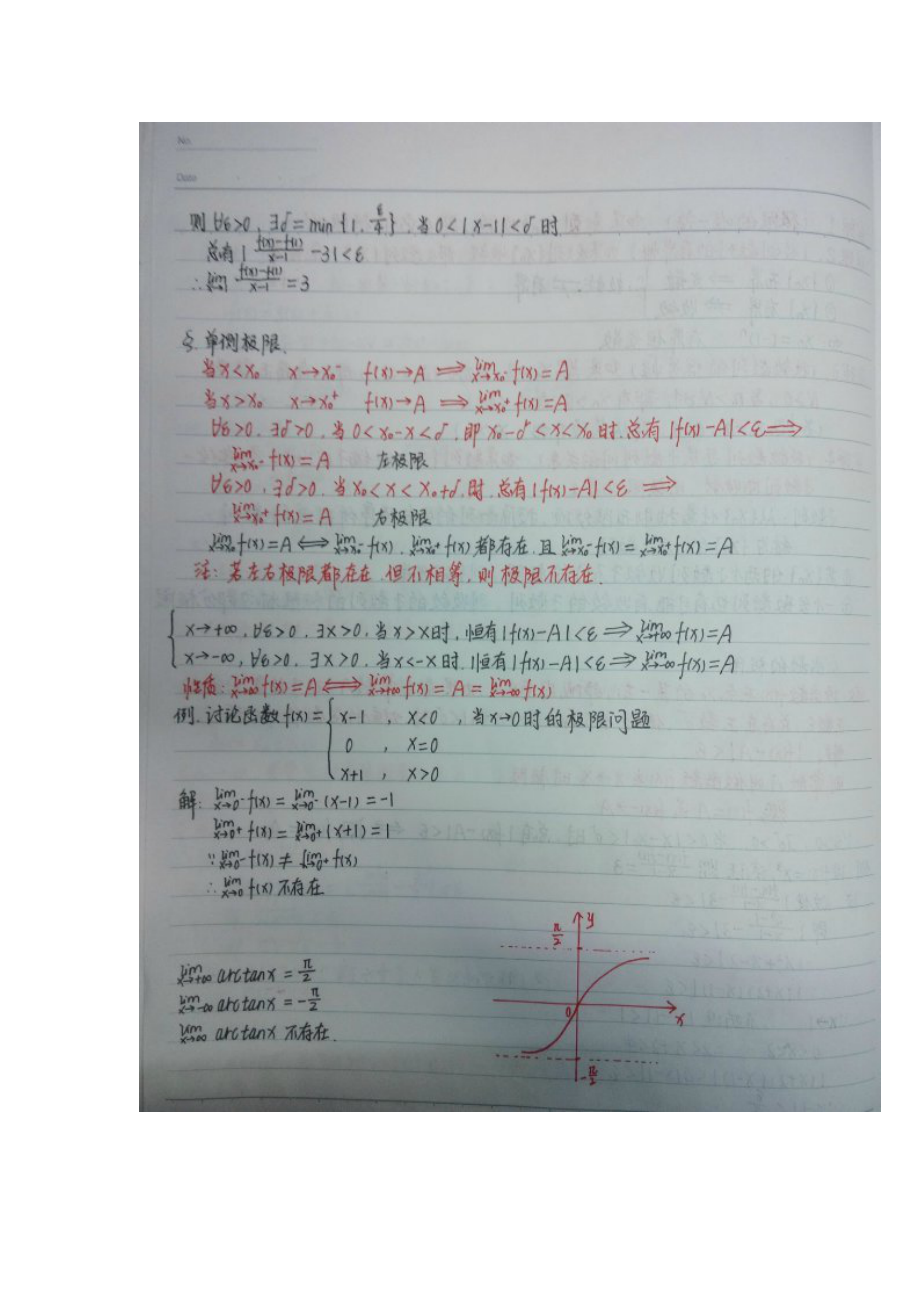 No.
Date
则∀ε>0, ∃δ=min{1, ε/4}, 当0<|x-1|<δ时
总有|(f(x)-f(1))/(x-1) -3|<ε
∴lim x→1 (f(x)-f(1))/(x-1) =3
3. 单侧极限.
当x<x₀ x→x₀⁻ f(x)→A ⟹ lim x→x₀⁻ f(x)=A
当x>x₀ x→x₀⁺ f(x)→A ⟹ lim x→x₀⁺ f(x)=A
∀ε>0. ∃δ>0. 当0<x₀-x<δ. 即x₀-δ<x<x₀时. 总有|f(x)-A|<ε⟹
lim x→x₀⁻ f(x)=A 左极限
∀ε>0, ∃δ>0. 当x₀<x<x₀+δ.时. 总有|f(x)-A|<ε ⟹
lim x→x₀⁺ f(x)=A 右极限
lim x→x₀ f(x)=A⟺lim x→x₀⁻ f(x). lim x→x₀⁺ f(x)都存在. 且lim x→x₀⁻ f(x)=lim x→x₀⁺ f(x)=A
注: 若左右极限都存在.但不相等,则极限不存在.
x→+∞, ∀ε>0. ∃X>0, 当x>X时. 恒有|f(x)-A|<ε⟹lim x→+∞ f(x)=A
x→-∞, ∀ε>0. ∃X>0. 当x<-X时. 恒有|f(x)-A|<ε⟹lim x→-∞ f(x)=A
性质: lim x→∞ f(x)=A⟺lim x→+∞ f(x)=A=lim x→-∞ f(x)
例. 讨论函数f(x)={ x-1 , x<0 , 当x→0时的极限问题
0 , x=0
x+1 , x>0
解: lim x→0⁻ f(x)=lim x→0⁻ (x-1)=-1
lim x→0⁺ f(x)=lim x→0⁺ (x+1)=1
∵lim x→0⁻ f(x)≠lim x→0⁺ f(x)
∴lim x→0 f(x)不存在.
lim x→+∞ arctanx=π/2
lim x→-∞ arctanx=-π/2
lim x→∞ arctanx 不存在.
π/2 y
0 x
-π/2